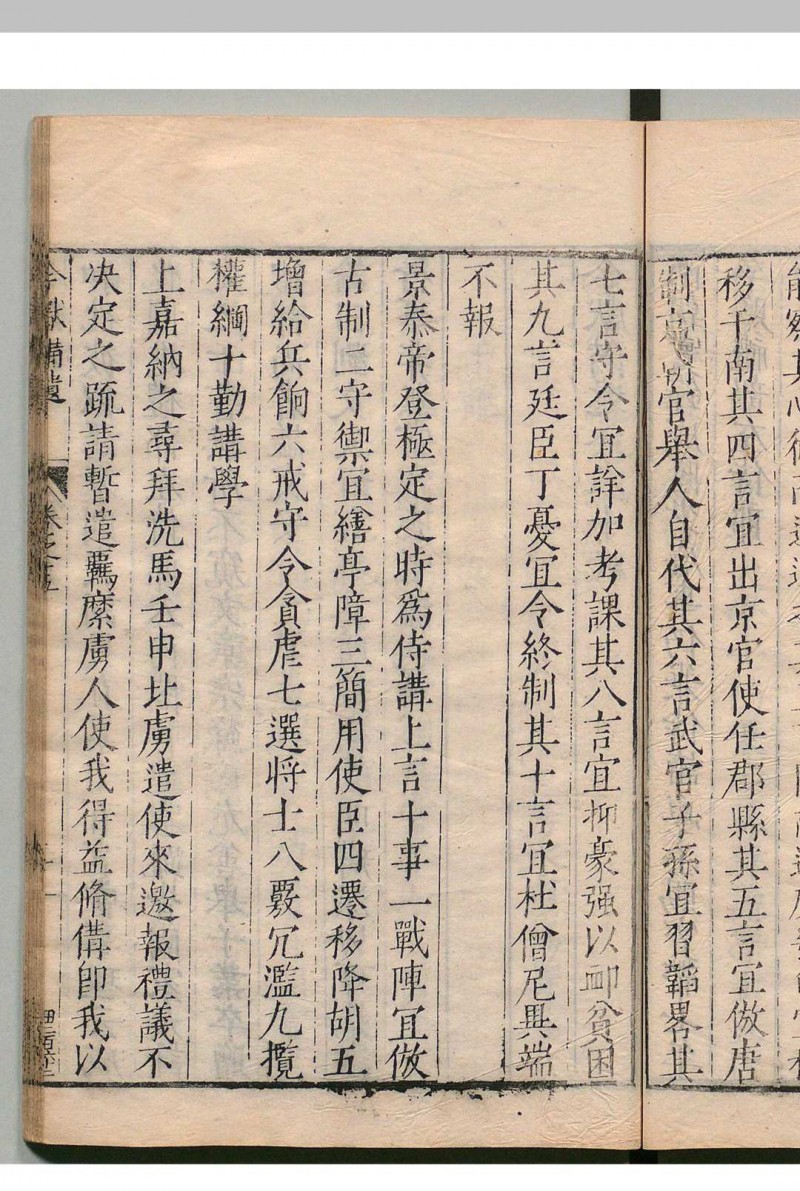 移于南其四言宜出京官使任郡縣其五言宜倣唐
制京朝官舉人自代其六言武官子孫宜習韜畧其
七言守令宜詳加考課其八言宜抑豪强以䘏貧困
其九言廷臣丁憂宜令終制其十言宜杜僧尼異端
不報
景泰帝登極定之時爲侍講上言十事一戰陣宜倣
古制二守禦宜繕亭障三簡用使臣四遷移降胡五
增給兵餉六戒守令貪虐七選將士八覈冗濫九攬
權綱十勤講學
上嘉納之尋拜洗馬壬申北虜遣使來邀報禮議不
決定之䟽請暫遣羈縻虜人使我得益脩備即我以
今獻備遺 卷之十五